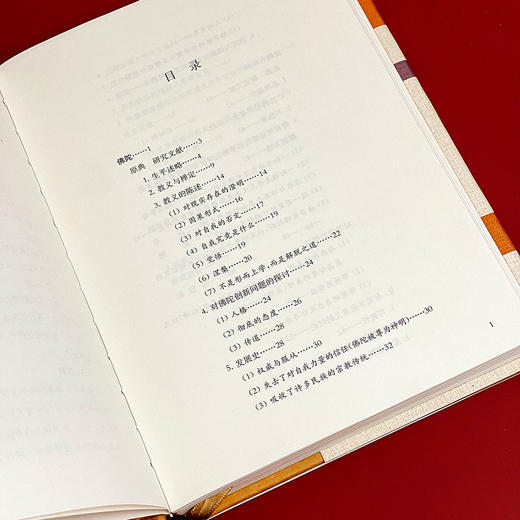 目录
佛陀……1
原典 研究文献……3
1. 生平述略……4
2. 教义与禅定……9
3. 教义的陈述……14
(1) 对现实存在的澄明……14
(2) 因果形式……16
(3) 对自我的否定……17
(4) 自我究竟是什么……19
(5) 觉悟……19
(6) 涅槃……20
(7) 不是形而上学,而是解脱之道……22
4. 对佛陀创新问题的探讨……24
(1) 人格……24
(2) 彻底的态度……26
(3) 传道……28
5. 发展史……28
(1) 权威与服从……30
(2) 失去了对自我力量的信任(佛陀被尊为神明)……30
(3) 吸收了许多民族的宗教传统……32
1